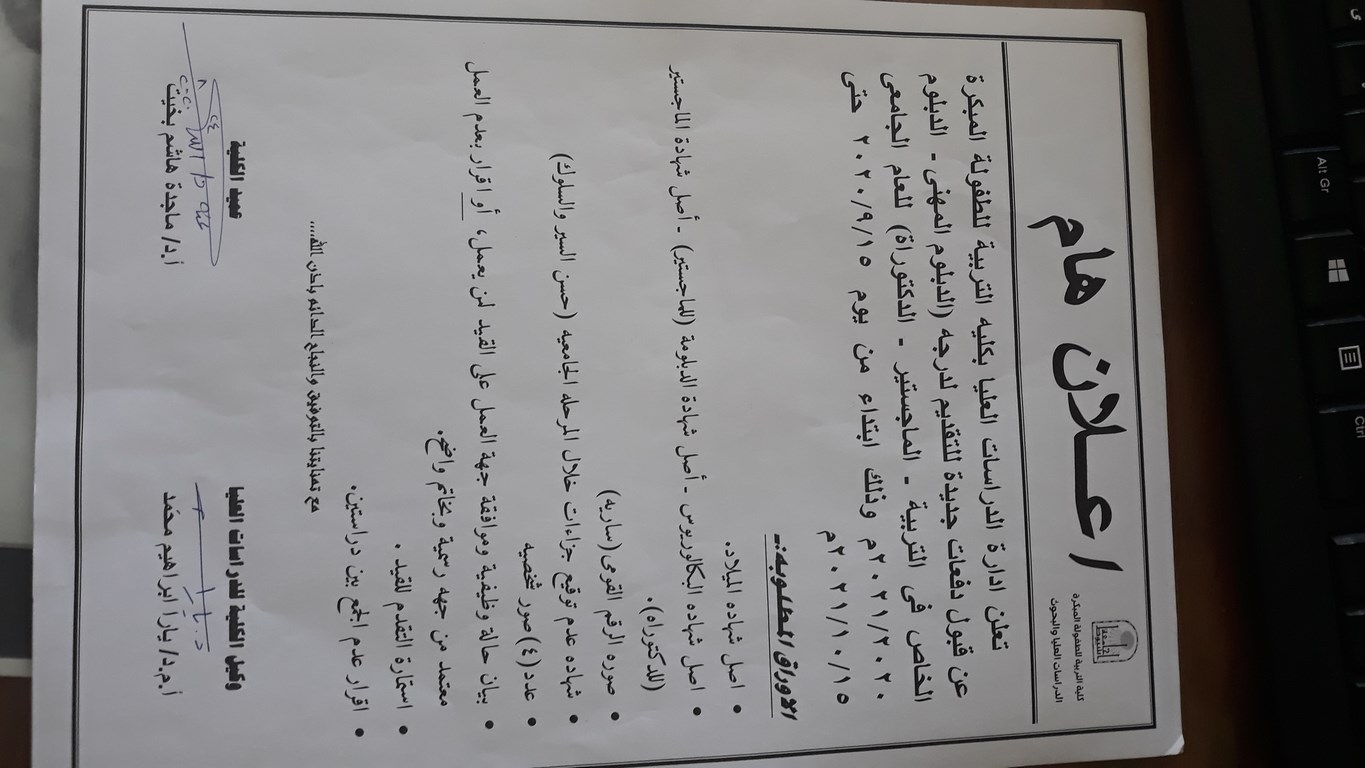 كلية التربية للطفولة المبكرة
الدراسات العليا والبحوث
اعـــلان هام
تعلن ادارة الدراسات العليا بكليه التربية للطفولة المبكرة
عن قبول دفعات جديدة للتقديم لدرجه (الدبلوم المهنى - الدبلوم
الخاص فى التربية - الماجستير - الدكتوراة) للعام الجامعى
٢٠٢١/٢٠٢٠م وذلك ابتداء من يوم ٢٠٢٠/٩/١٥ حتى
٢٠٢١/١٠/١٥م
الاوراق المطلوبة:-
• اصل شهاده الميلاد.
• اصل شهاده البكالوريوس - أصل شهادة الدبلومة (للماجستير) - أصل شهادة الماجستير
(للدكتوراه).
• صوره الرقم القومى (ساريه)
• شهاده عدم توقيع جزاءات خلال المرحله الجامعيه (حسن السير والسلوك)
• عدد (٤) صور شخصيه
• بيان حالة وظيفية وموافقة جهة العمل على القيد لمن يعمل، أو اقرار بعدم العمل
معتمد من جهه رسمية وبخاتم واضح.
• استمارة التقدم للقيد .
• اقرار عدم الجمع بين دراستين.
مع تمنياتنا بالتوفيق والنجاح الدائم باذن الله....
وكيل الكلية للدراسات العليا
عميد الكلية
أ.م.د/ يارا ابراهيم محمد
أ.د/ ماجدة هاشم بخيت
Alt Gr
Ctrl